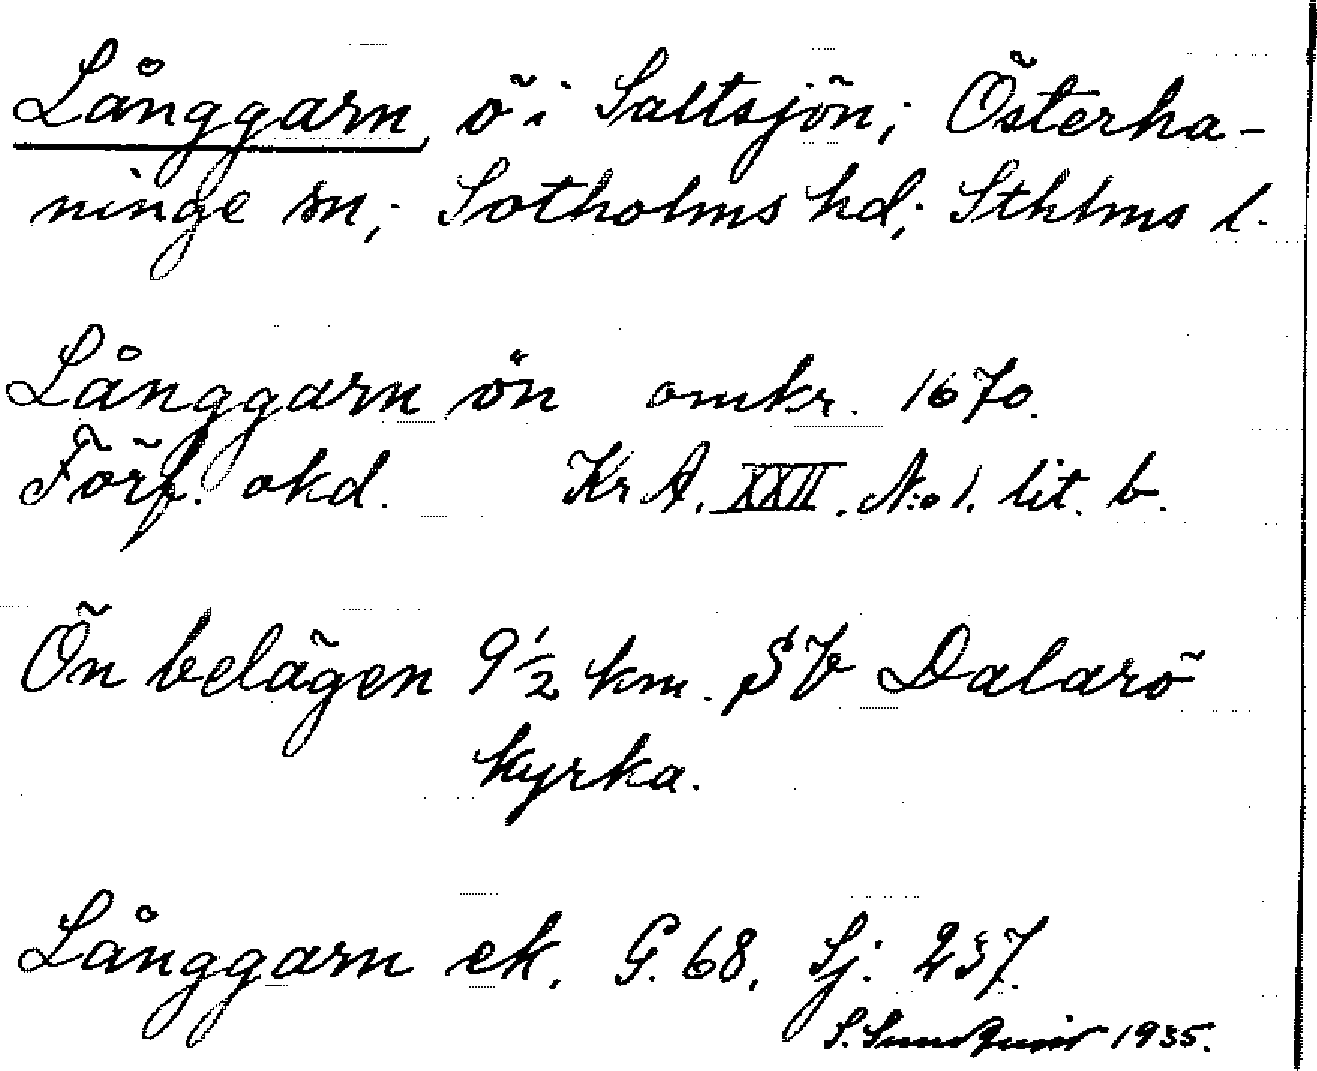 Långgarn, ö i Saltsjön; Österha-
ninge sn; Sotholms hd; Sthlms l.
Långgarn ön omkr. 1670.
Förf. okd. Kr A. XXII. No 1. lit. b.
Ön belägen 9 1/2 km. SV Dalarö
kyrka.
Långgarn ek. G. 68, Sj. 237.
S. Sundquist 1935.